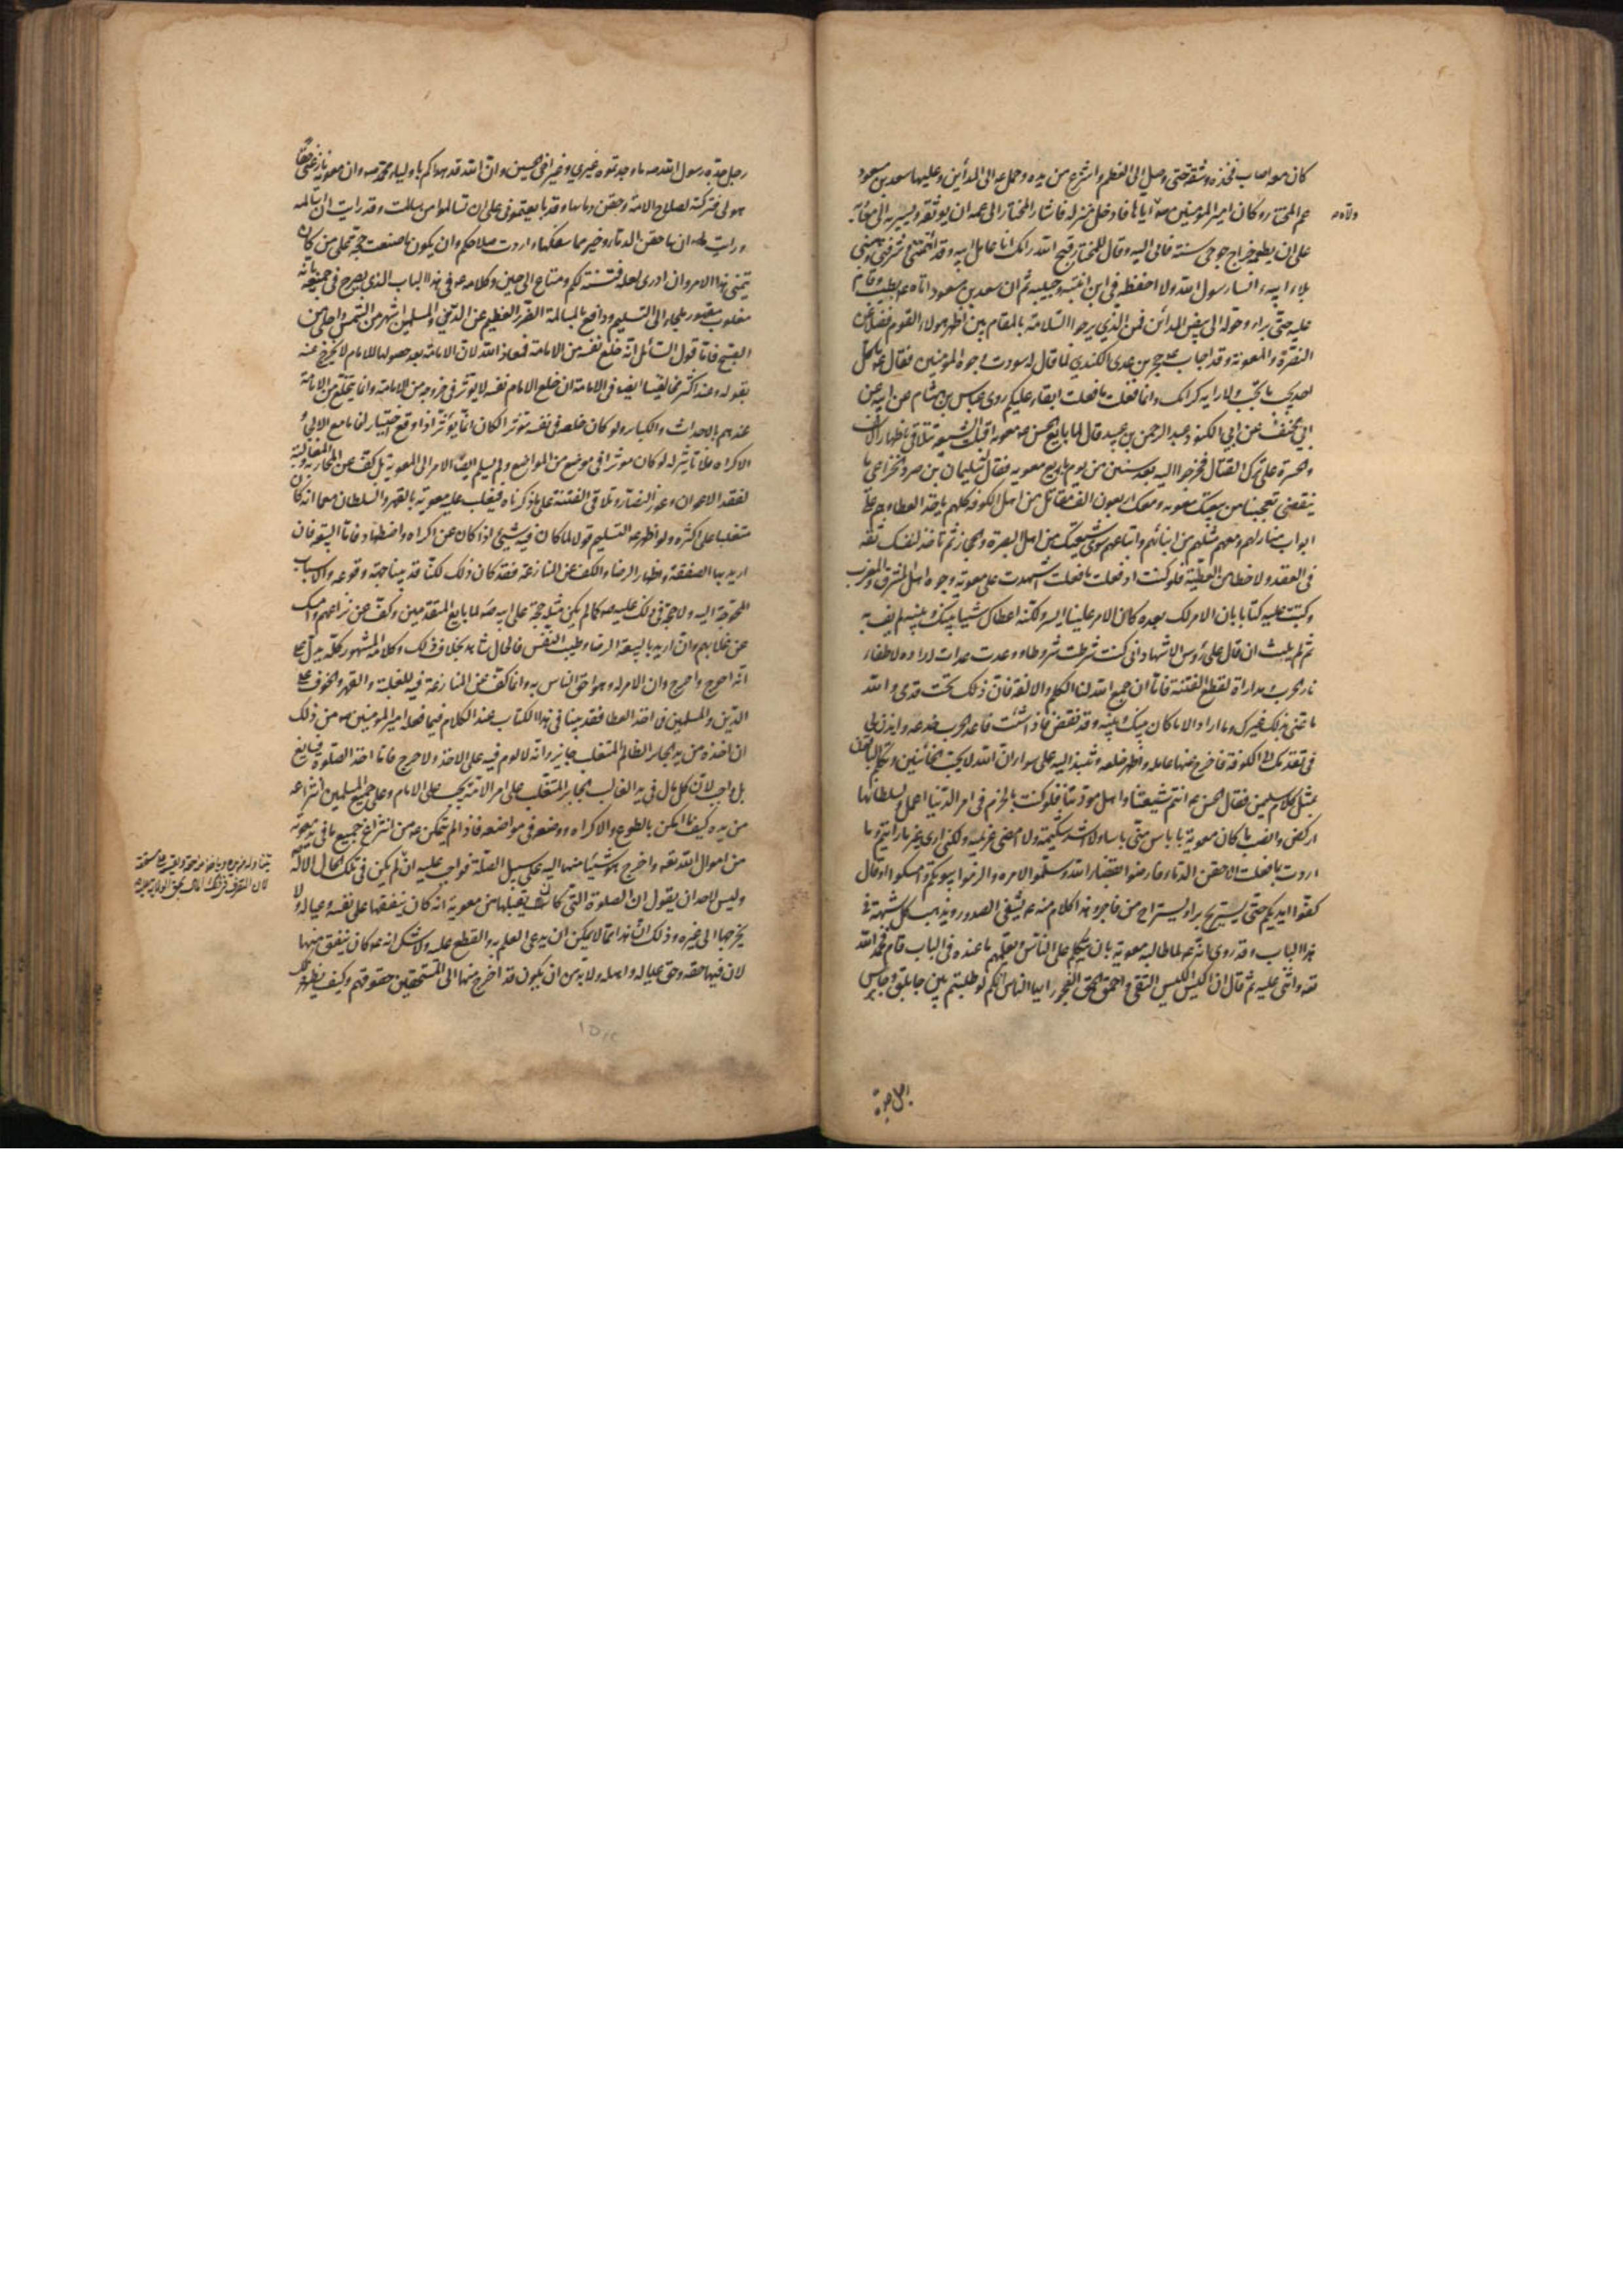 كان معه اصاب فخذه فشقه حتى وصل الى العظم وانتزع من يده وحمل ع الى المداين وعليها سعد بن مسعود
عم المختار وكان امير المؤمنين ص ولاه اياها فادخل منزله فاشار المختار الى عمه ان يوثقه ويسير به الى معوية
على ان يطعمه خراج جوخى سنة فابى اليه وقال للمختار قبح الله رايك انا عامل ابيه وقد ائتمننى وشرفنى وهبنى
بلاء ابيه وانسا رسول الله ولا احفظه فى ابن ابنته وحبيبه ثم ان سعد بن مسعود اتاه ع بطبيب وقام
عليه حتى براء وحوله الى بيض المدائن فمن الذي يرجو السلامة بالمقام بين اظهر هولاء القوم فضلا عن
النصرة والمعونة وقد اجاب ع حجر بن عدى الكندي لما قال له سودت وجوه المؤمنين فقال ع ما كل
احد يحب ما تحب ولا رايه كرايك وانما فعلت ما فعلت ابقاء عليكم روى عباس بن هشام عن ابيه عن
ابى مخنف عن ابي الكنود عبد الرحمن بن عبيد قال لما بايع الحسن ع معوية اقبلت الشيعة تتلاقى باظهار الاسف
والحسرة على ترك القتال فخرجوا اليه بعد سنتين من يوم بايع معوية فقال له سليمان بن صرد الخزاعى ما
ينقضى تعجبنا من بيعتك معوية ومعك اربعون الف مقاتل من اهل الكوفة كلهم ياخذ العطاء وهم على
ابواب منازلهم ومعهم مثلهم من ابنائهم واتباعهم سوى شيعتك من اهل البصرة والحجاز ثم تاخذ لنفسك ثقة
فى العقد ولا حظا من العطية فلو كنت اذ فعلت ما فعلت اشهدت على معوية وجوه اهل المشرق والمغرب
وكتبت عليه كتابا بان الامر لك بعده كان الامر علينا ايسر ولكنه اعطاك شيئا بينك وبينه لم يف به
ثم لم يلبث ان قال على رؤس الاشهاد انى كنت شرطت شروطا ووعدت عدات ارادة لاطفاء
نار الحرب ومداراة لقطع الفتنة فاما ان جمع الله لنا الكلم والالفة فان ذلك تحت قدمى والله
ما عنى بذلك غيرك وما اراد الا ما كان بينك وبينه وقد نقض فاذا شئت فاعد الحرب خدعة وايذن لى
فى تقدمك الى الكوفة فاخرج عنها عامله واظهر خلعه وننبذ اليه على سواء ان الله لا يحب الخائنين وتكلم الباقون
بمثل كلام سليمن فقال الحسن ع انتم شيعتنا واهل مودتنا فلو كنت بالحزم فى امر الدنيا اعمل ولسلطانها
اركض وانصب ما كان معوية باباس منى باسا ولا اشد شكيمة ولا امضى عزيمة ولكنى ارى غير ما رايتم وما
اردت بما فعلت الا حقن الدماء فارضوا بقضاء الله وسلموا لامره والزموا بيوتكم وامسكوا او قال
كفوا ايديكم حتى يستريح بر او يستراح من فاجر وهذا كلام منه ع يشفى الصدور ويذهب بكل شبهة فى
هذا الباب وقد روى انه ع لما طالبه معوية بان يتكلم على الناس ويعلمهم ما عنده فى الباب قام فحمد الله
تعه واثنى عليه ثم قال ان اكيس الكيس التقى واحمق الحمق الفجور ايها الناس انكم لو طلبتم بين جابلق وجابرس
رجل جده
رجل جده رسول الله ص ما وجدتموه غيري وغير اخى الحسين وان الله قد هداكم باولياء محمد ص وان معوية نازعنى حقا
هو لى فتركته لصلاح الامة وحقن دمائها وقد بايعتمونى على ان تسالموا من سالمت وقد رايت ان اسالمه
ورايت ان ما حقن الدماء خير مما سفكها واردت صلاحكم وان يكون ما صنعت حجة على من كان
يتمنى هذا الامر وان ادرى لعله فتنة لكم ومتاع الى حين وكلامه ع فى هذا الباب الذى يصرح فى جميعه بانه
مغلوب مقهور ملجاء الى التسليم ودافع بالمسالمة الضرر العظيم عن الدين والمسلمين اشهر من الشمس واجلى من
الصبح فاما قول السائل انه خلع نفسه من الامامة فمعاذ الله لان الامامة بعد حصولها للامام لا يخرج عنه
بقوله وعند اكثر مخالفينا ايضا فى الامامة ان خلع الامام نفسه لا يوثر فى خروجه من الامامة وانما ينخلع من الامامة
عندهم بالاحداث والكبائر ولو كان خلعه فى نفسه مؤثرا لكان انما يؤثر اذا وقع اختيارا فاما مع الالجاء و
الاكراه فلا تاثير له لو كان موثرا فى موضع من المواضع ولم يسلم ايضا الامر الى معوية بل كف عن المحاربة والمغالبة
لفقد الاعوان وعوز النصار وتلافى الفتنة على ما ذكرناه فيغلب عليه معوية بالقهر والسلطان مع انه كان
متغلبا على اكثره ولو اظهر ع التسليم قولا لما كان فيه شيئ اذا كان عن اكراه واضطهاد فاما البيعة فان
اريد بها الصفقة واظهار الرضاء والكف عن المنازعة فقد كان ذلك لكنا قد بينا جهة وقوعه والاسباب
المحوجة اليه ولا حجة فى ذلك عليه ص كما لم يكن فى مثله حجة على ابيه ص لما بايع المتقدمين وكف عن نزاعهم وامسك
عن خلافهم وان اريد بالبيعة الرضا وطيب النفس فالحال شاهد بخلاف ذلك وكلامه المشهور كله يدل على
انه احوج واحرج وان الامر له وهو احق الناس به وانما كف عن المنازعة فيه للغلبة والقهر والخوف على
الدين والمسلمين فاما اخذ العطا فقد بينا فى هذا الكتاب عند الكلام فيما فعله امير المؤمنين ص من ذلك
ان اخذه من يد الجاير الظالم المتغلب جايز وانه لا لوم فيه على الاخذ ولا حرج فاما اخذ الصلوة فسايغ
بل واجب لان كل مال فى يد الغالب الجابر المتغلب على امر الامة يجب على الامام وعلى جميع المسلمين انتزاعه
من يده كيف ما امكن بالطوع والاكراه ووضعه فى مواضعه فاذا لم يتمكن ع من انتزاع جميع ما فى يد معوية
من اموال الله تعه واخرج هو شيئا منها اليه على سبيل الصلة فواجب عليه ان
وليس لاحد ان يقول ان الصلوة التى كان يقبلها من معوية انه كان ينفقها على نفسه وعياله ولا
يخرجها الى غيره وذلك ان هذا مما لا يمكن ان يدعى العلم به والقطع عليه ولا شك انه ع كان ينفق منها
لان فيها حقه وحق عياله واهله ولا بد من ان يكون قد اخرج منها الى المستحقين حقوقهم وكيف يظهر